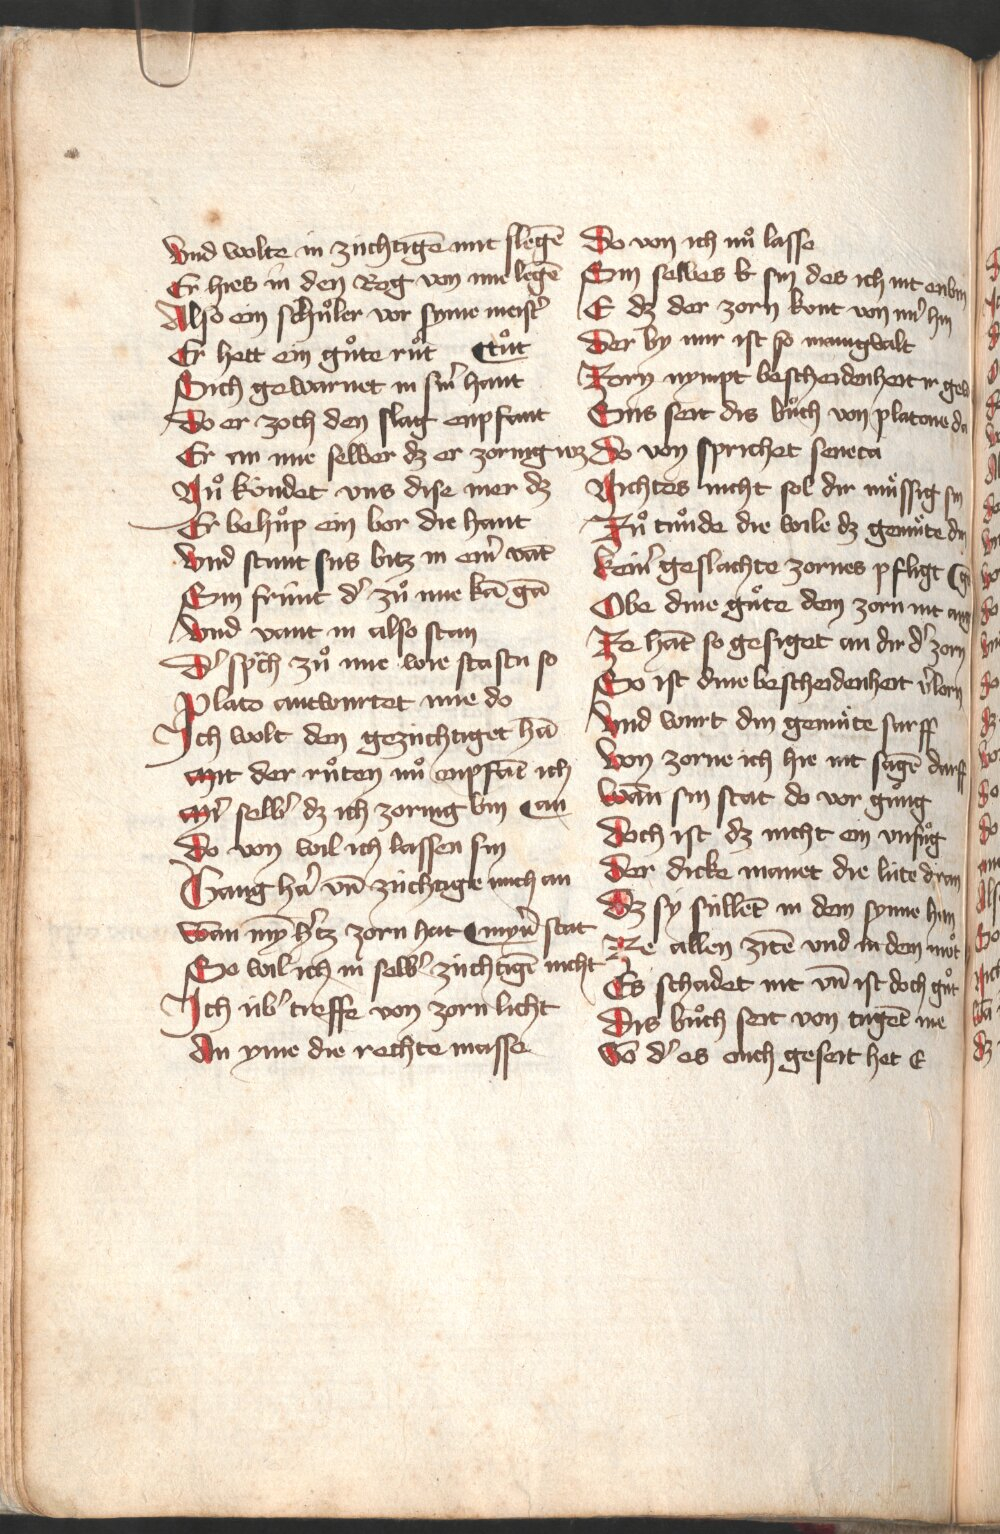 Vnd wolte in züchtigē mit slegē
Er hies in den Rog von ime legē
Also ein schuͦler vor syme meist'
Er hett ein guͦte ruͦt tuͦt
Sich gewarnet in sin' hant
Do er zoch den slag enpfant
Er an ime selber dz er zornig wz
Nuͦ kündet vns dise mer dz
Er behuͦp ein bor die hant
Vnd stunt sus bitz in ein' vāt
Sin frünt d' zuͦ ime kā gā
Vnd vant in also stan
D' sp̄ch zuͦ ime wie stastu so
Plato antwurtet ime do
Ich wolt den gezüchtiget hā
Mit der ruͦten nuͦ enpfāt ich
Mi' selb' dz ich zornig bin an
Do von wil ich lassen sin
Gang ha' vn̄ züchtige mich an
Wan my̅ h'tz zorn hat myn' stat
So wil ich in selb' züchtigē nicht
Ich üb' treffe von zorn licht
An yme die rechte masse
Do von ich nuͦ lasse
Sin selbes sin des ich nit enbin
E dz der zorn kont von mi' hin
Der by mir ist so manigvalt
Zorn nympt bescheidenheit ir
Sus seit dis buͦch von platone da
Do von sprichet seneca
Nichtes nicht sol dir muͤssig sin
Zuͦ tuͦnde die wile dz gemuͤte din
kein' geslachte zornes pfligt
Obe dine guͤte dem zorn nit
Ze hāt so gesiget an dir d' zorn
So ist dine bescheidenheit v'lorn
Vnd wurt din gemuͤte sarff
Von zorne ich hie nit sagē darff
Wan sin stat do vor guͦng
Doch ist dz nicht ein vnfuͦg
Der dicke manet die lüte dran
Dz sy süllēt in dem synne han
Ze allen zitē vnd in dem muͦt
Es schadet nit vn̄ ist doch guͦt
Dis buͦch seit von tugēt me
Wo d' es ouch geseit het E